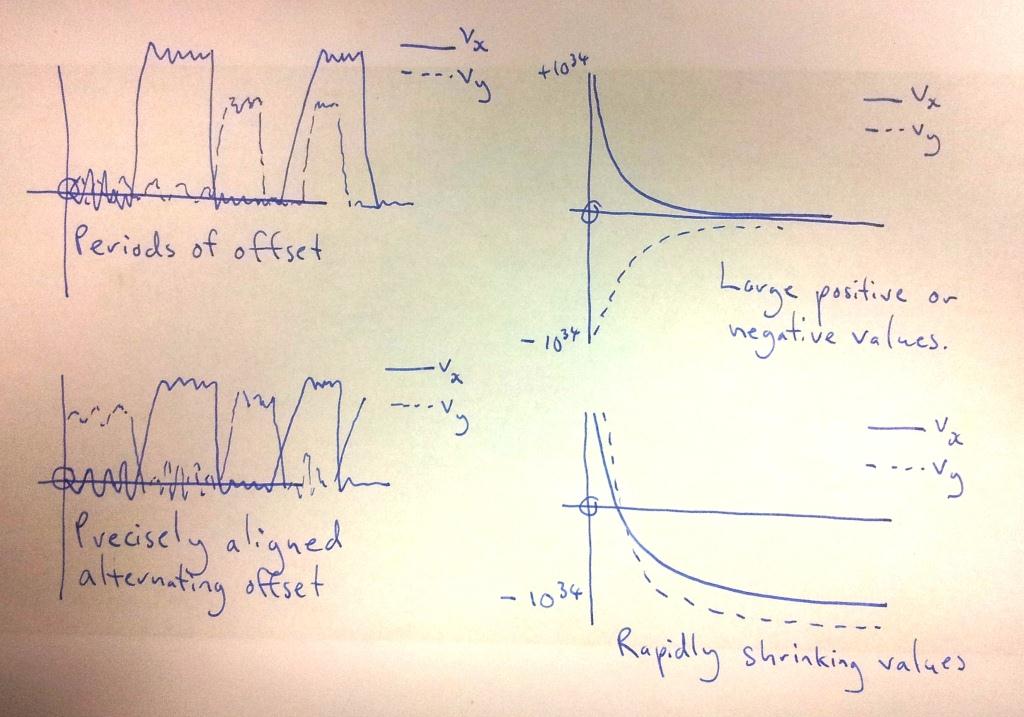 Vx
Vy
Periods of offset
+10³⁴
Vx
Vy
-10³⁴
Large positive or
negative values.
Vx
Vy
Precisely aligned
alternating offset
Vx
Vy
-10³⁴
Rapidly shrinking values